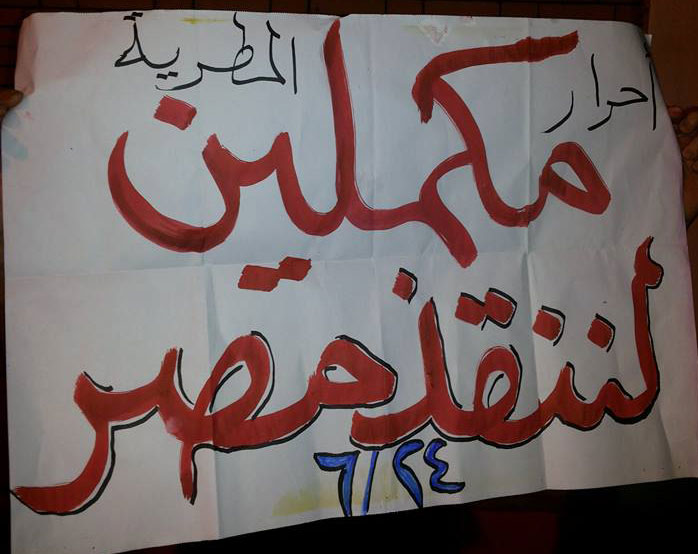 أحرار المطرية
مكملين
لننقذ مصر
٦/٢٤